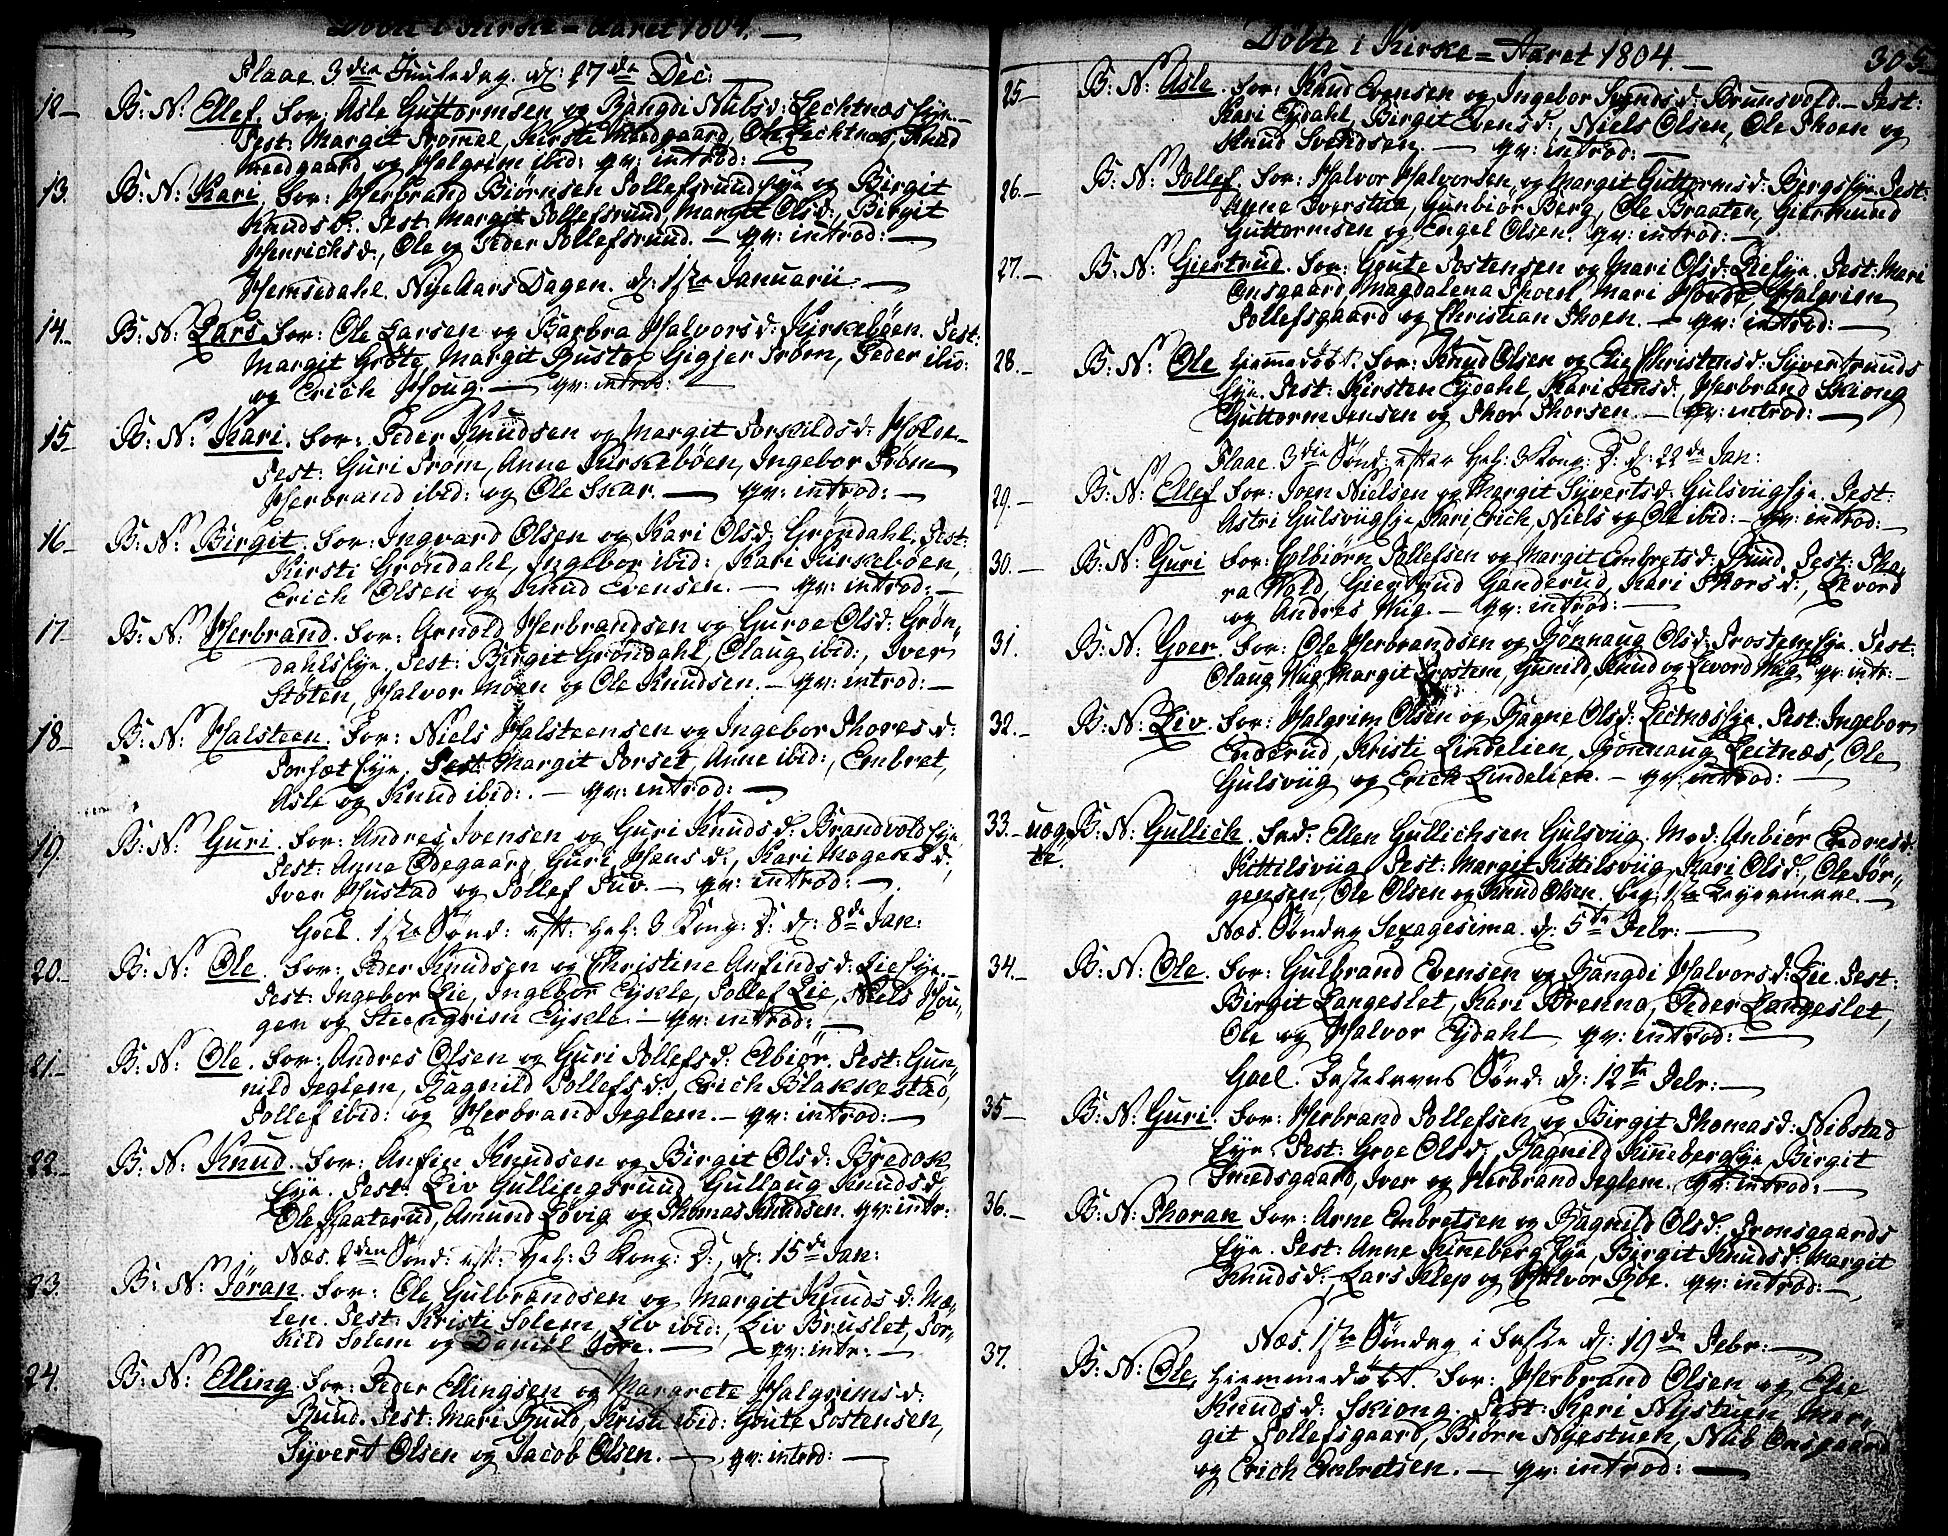 Døbte i Kirke=Aaret 1804.
Flaae. 3die Juuledag. d: 27de Dec:
12 B: N: Ellef. For: Asle Guttormsen og Bangdi Nubsd: Lechtnæs Eye.
Test: Margit Trommal, Kirsti Meedgaard, Ole Lechtnæs, Knud
meedgaard og Halgrim ibid: qv: introd:
13. B: N: Kari, For: Herbrand Biørnsen Tollefsruud Eye og Birgit
Knudsd: Test: Margit Tollefsruud, Margit Olsd:, Birgit
Henrichsd:, Ole og Peder Tollefsruud. qv: introd:
Hemsedahl. NyeAars Dagen. d: 1ste Januarii.
14. B: N: Lars For: Ole Larsen og Barbra Halvorsd: Kirkebøen. Test:
Margit Grøte, Margit Busto, Gigjer Trøm, Peder ibid:
og Erich Houg. qv: introd:
15 B: N: Kari. For: Peder Knudsen og Margit Torkildsd: Holde
Test: Guri Trøm, Anne Kirkebøen, Ingebor Trøm
Herbrand ibid: og Ole Skar. qv: introd:
16 B: N: Birgit. For: Ingvard Olsen og Kari Olsd: Grøndahl. Test:
Kirsti Grøndahl, Ingebor ibid:, Kari Kirkebøen,
Erich Olsen og Knud Evensen. qv: introd:
17 B: N: Herbrand. For: Arnold Herbrandsen og Guroe Olsd: Grøn-
dahls Eye. Test: Birgit Grøndahl, Olaug ibid:, Iver
Støten, Halvor Moen og Ole Knudsen. qv: introd:
18 B: N: Halsteen. For: Niels Halsteensen og Ingebor Thoresd:
Torset Eye. Test: Margit Torset, Anne ibid:, Embret,
Asle og Knud ibid: qv: introd:
19. B: N: Guri. For: Andres Ivensen og Guri Knudsd: Brandvold Eye
Test: Anne Ødegaard, Guri Hansd:, Kari Mogensd:,
Iver Hustad og Tollef Tuv. qv: introd:
Goel. 1ste Sønd: eft: Hel: 3 Kong: D: d: 8de Jan:
20. B: N: Ole. For: Peder Knudsen og Christine Anfindsd: Lie Eye.
Test: Ingebor Lie, Ingebor Eykle, Tollef Lie, Niels Hou-
gen og Steengrim Eykle. qv: introd:
21. B: N: Ole. For: Andres Olsen og Guri Tollefsd: Elbiør. Test: Gun-
nild Jeglem, Ragnild Tollefsd:, Erich Blakkestad,
Tollef ibid: og Herbrand Jeglem. qv: introd:
22. B: N: Knud. For: Anfin Knudsen og Birgit Olsd: Bredok
Eye. Test: Liv Gullingsruud, Gullaug Knudsd:
Ole Haaterud, Amund Løvig og Thomas Knudsen. qv: intr:
Næs. 2den Sønd: eft: Hel: 3 Kong: D: d: 15de Jan:
23. B: N: Jøran. For: Ole Gulbrandsen og Margit Knudsd: Mæ-
len. Test: Kristi Solem, Liv ibid:, Liv Bruslet, Tor-
kild Solem og Daniel Gøre. qv: intr:
24. B: N: Elling For: Peder Ellingsen og Margrete Halgrimsd:
Ruud. Test: Mari Ruud, Kristi ibid: Goute Tostensen,
Syvert Olsen og Jacob Olsen. qv: introd:
Døbte i Kirke=Aaret 1804. 305
25 B: N: Asle. For: Knud Evensen og Ingebor Svendsd: Brunsvold. Test:
Kari Eydahl, Birgit Evensd:, Niels Olsen, Ole Skoen og
Knud Svendsen. qv: introd:
26. B: N: Tollef. For: Halvor Halvorsen og Margit Guttormsd: Bergs Eye. Test:
Anne Iverstue, Gunbiør Berg, Ole Braaten, Giermund
Guttormsen og Engel Olsen. qv: introd:
27. B: N: Giertrud. For: Goute Tostensen og Mari Olsd: Lie Eye. Test: Mari
Onsgaard, Magdalena Skoen, Mari Horde, Halgrim
Tollefsgaard og Christian Skoen. qv: introd:
28. B: N: Ole hiemmedøbt. For: Knud Olsen og Elie Christensd: Syvertruuds
Eye. Test: Kirsten Eydahl, Kari Jensd:, Herbrand Skiong
Guttorm Jensen og Thor Thorsen. qv: introd:
Flaae. 3die Sønd: efter Hel: 3 Kong: D: d: 22de Jan:
29. B: N: Ellef For: Joen Nielsen og Margit Syvertsd: Gulsviig Eye. Test:
Astri Gulsviig Eye, Kari, Erich, Niels og Ole ibid: qv: introd:
30. B: N: Guri For: Colbiørn Tollefsen og Margit Embretsd: Ruud. Test: Tho-
ra Vold, Giertrud Ganderud, Kari Thorsd:, Levord
og Andres Wiig. qv: introd:
31. B: N: Goer. For: Ole Herbrandsen og Rønnaug Olsd: Trostem Eye. Test:
Olaug Wiig, Margit Trostem, Gunild, Knud og Levord Wiig. qv: intr:
32. B: N: Liv. For: Halgrim Olsen og Ragne Olsd: Lectnæs Eye. Test: Ingebor
Enderud, Kristi Lindelien, Rønnaug Lectnæs, Ole
Gulsviig og Erich Lindelien. qv: introd:
33. uæg- B: N: Gullich. Fad: Ellen Gullichsen Gulsviig. Mod: Anbiør Endresd:
te. Kittilsviig. Test: Margit Kittilsviig, Kari Olsd:, Ole Jør-
gensen, Ole Olsen og Knud Olsen. beg: 1ste Leyermaal.
Næs. Søndag Sexagesima. d: 5te Febr:
34. B: N: Ole. For: Gulbrand Evensen og Rangdi Halvorsd: Lie. Test:
Birgit Langeslet, Kari Brenna, Peder Langeslet,
Ole og Halvor Eydahl qv: introd:
Goel. Fastelavns Sønd: d: 12te Febr:
35 B: N: Guri. For: Herbrand Tollefsen og Birgit Thomasd: Nibstad
Eye. Test: Groe Olsd:, Ragnild Kinneberg Eye, Birgit
Smedsgaard, Iver og Herbrand Jeglem. qv: introd:
36. B: N: Thoran For: Arne Embretsen og Ragnild Olsd: Tronsgaards
Eye. Test: Anne Kinneberg Eye, Birgit Knudsd: Margit
Knudsd:, Lars Klep og Halvor Rbe. qv: introd:
Næs. 1ste Søndag i Faste d: 19de Febr:
37. B: N: Ole, hiemmedøbt. For: Herbrand Olsen og Elie
Knudsd: Skiong. Test: Kari Nystuen, Mar-
git Tollefsgaard, Biørn Nyestuen, Nub Onsgaard
og Erich Embretsen. qv: introd: